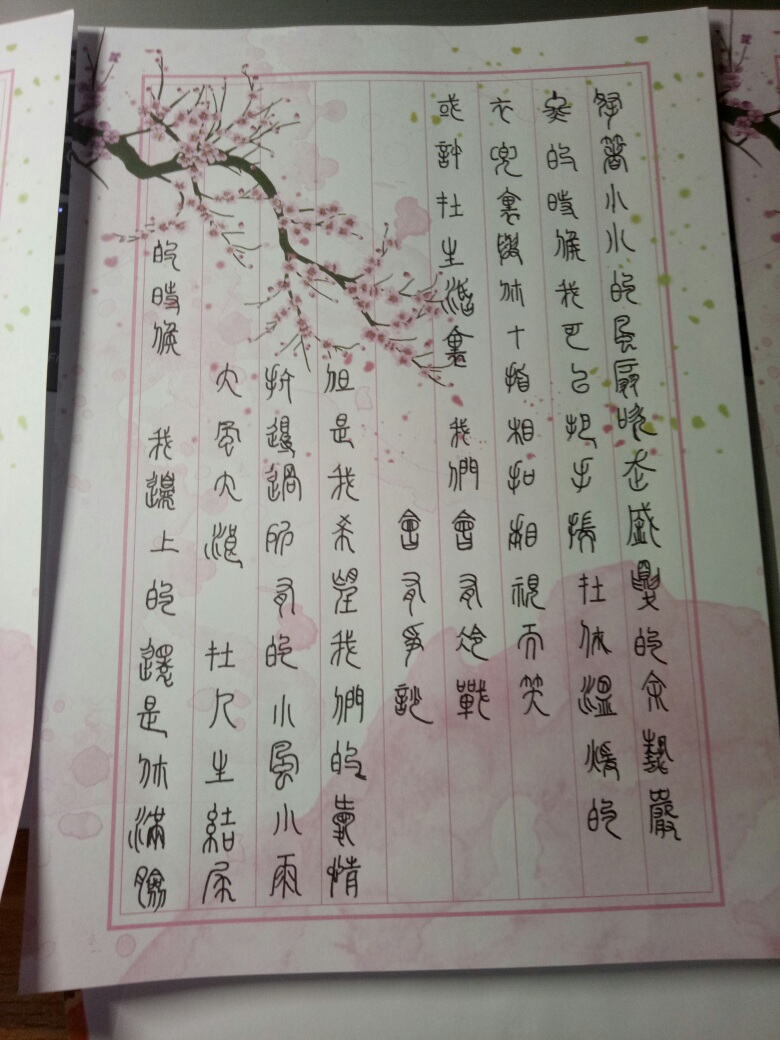 著小小的風扇吹走盛夏的余熱嚴
冬的時候我可以把手在你溫暖的
衣兜裏與你十指相扣相視而笑
或許在生活裏 我們會有冷戰
會有爭吵
但是我希望我們的愛情
過所有的小風小雨
大風大浪 在人生結尾
的時候 我邊上的還是你滿臉